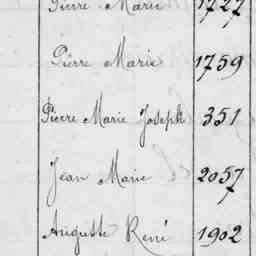 Pierre Marie 1727
Pierre Marie 1759
Pierre Marie Joseph 351
Jean Marie 2057
Auguste René 1902